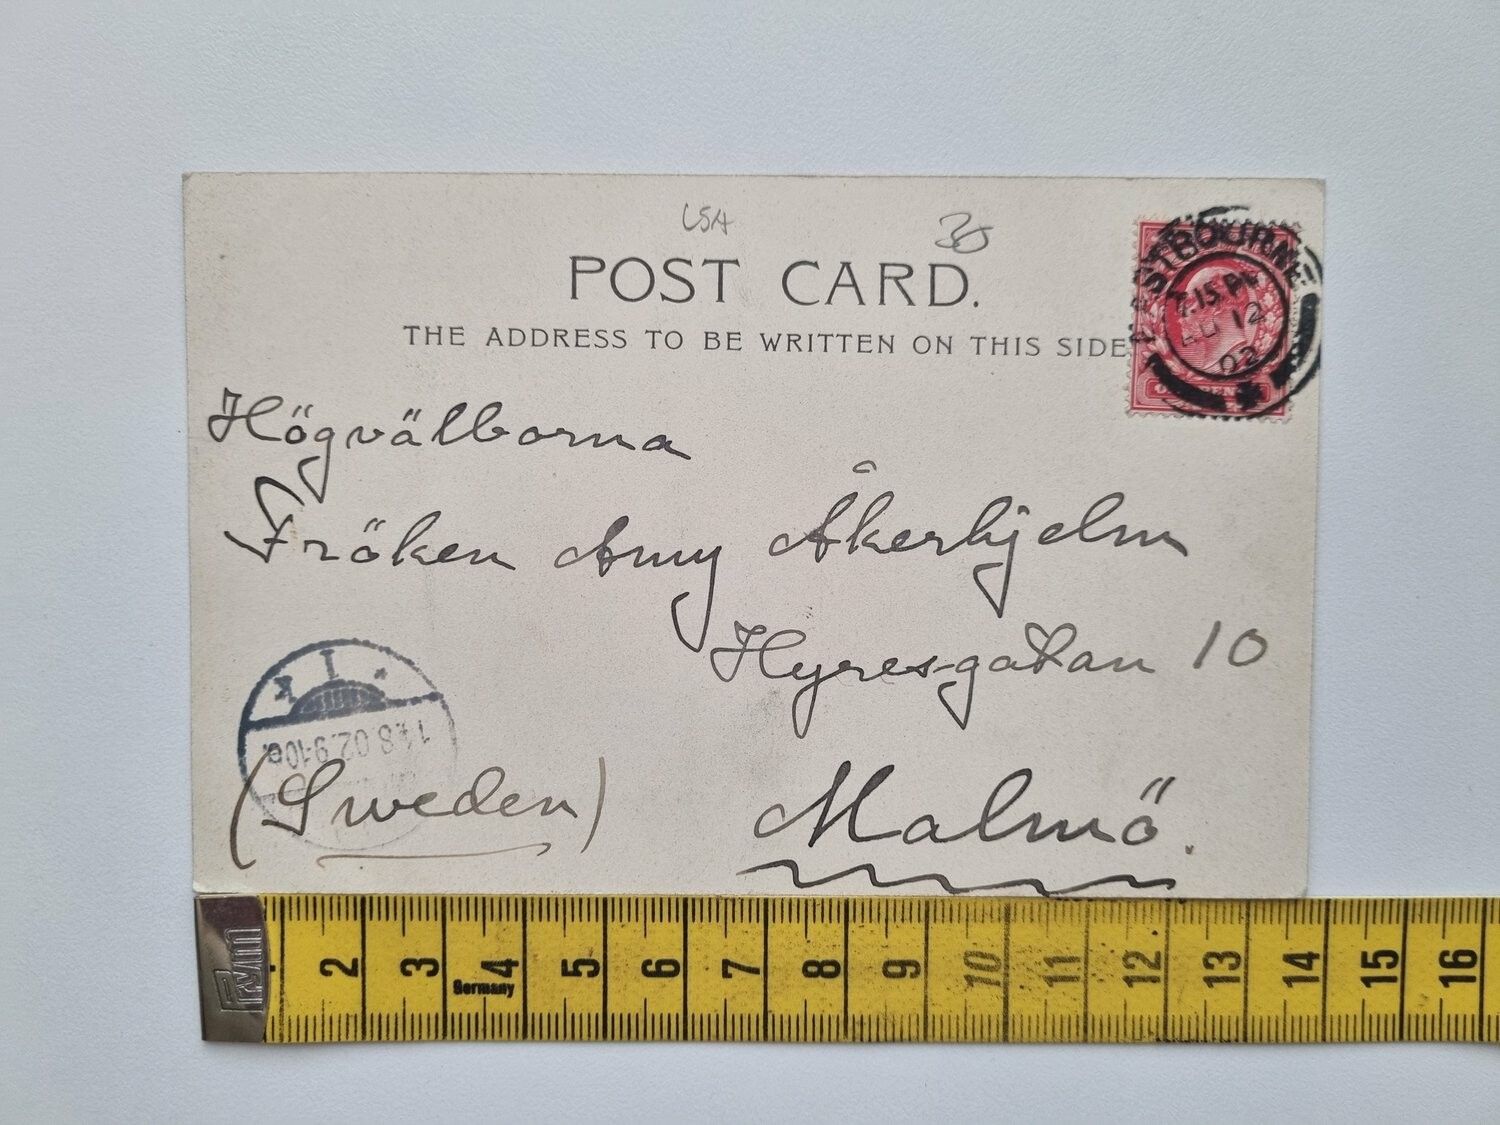 USA 30
POST CARD.
THE ADDRESS TO BE WRITTEN ON THIS SIDE
EASTBOURNE
7.15 PM
AU 12
02
Högvälborna
Fröken Amy Åkerhjelm
Hyresgatan 10
14.8.02.9-10
(Sweden)
Malmö.
2 3 4 5 6 7 8 9 10 11 12 13 14 15 16
Germany